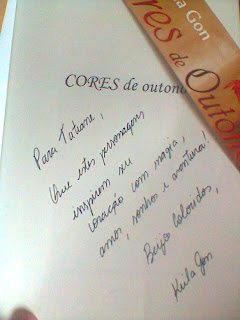 a Gon
ores
de Outono
CORES de outono
Para Tatiane,
Que estes personagens
inspirem seu
coração com magia,
amor, sonhos e aventura!
Beijos Coloridos,
Keila Gon